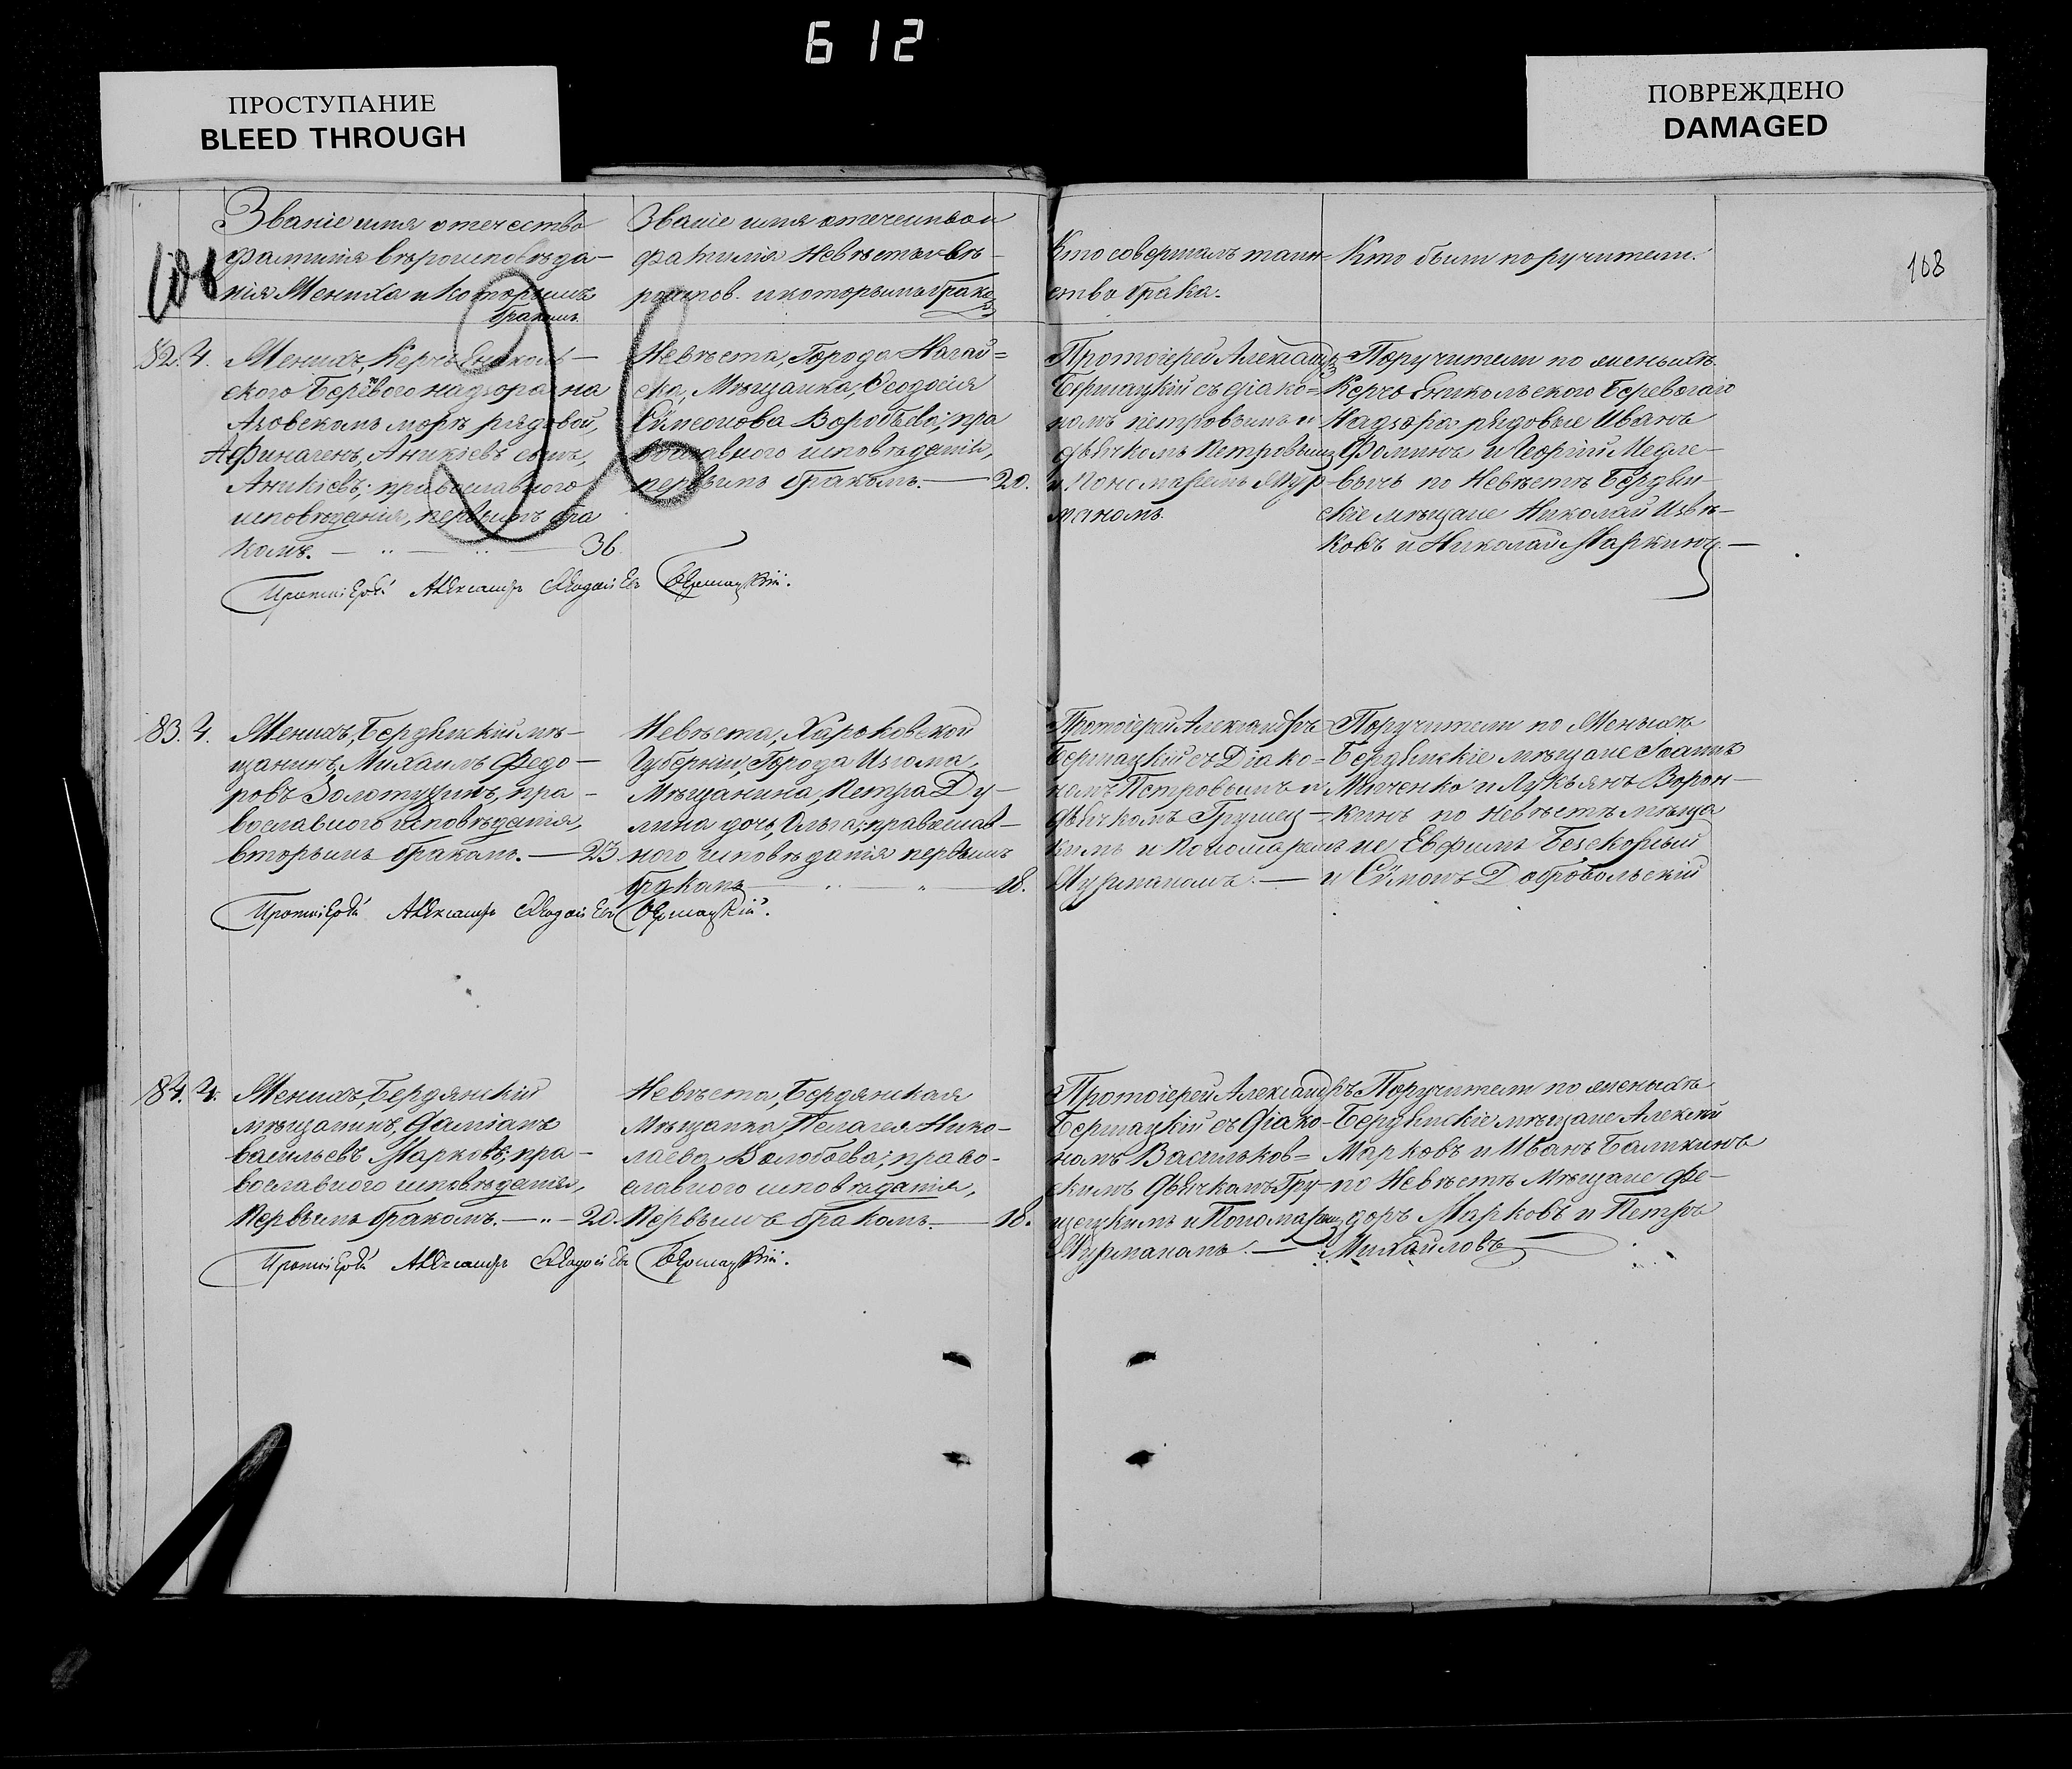 612
ПРОСТУПАНИЕ
BLEED THROUGH
ПОВРЕЖДЕНО
DAMAGED
108
Званіе имя отечество
фамилія вѣроисповѣда-
нія Жениха и Которымъ
бракомъ.
Званіе имя отечество и
фамилія Невѣсты вѣ-
роиспов. и которымъ брако
Кто совершалъ таин-
ство брака.
Кто были поручители.
82. 4.
Женихъ, Керчь Еникаль-
ского Берегового надзора на
Азовскомъ морѣ рядовой,
Афиногенъ, Аникіевъ сынъ,
Аникіевъ; православного
исповѣданія, первымъ бра
комъ. — 36.
Невѣста, Города Ногай=
ска, Мѣщанка, Феодосія
Сѵмеонова Воробьева; пра
вославного исповѣданія,
первымъ бракомъ. — 20.
Протоіерей Александръ
Бершацкій съ діако=
номъ Петровымъ и
дьячкомъ Петровымъ
и Пономаремъ Мур-
маномъ.
Поручители по женихѣ.
Керчь Еникольского Берегового
Надзора рядовые Иванъ
Фоминъ и Георгій Медве-
вычъ по Невѣстѣ Бердян-
скіе мѣщане Николай Извѣ-
ковъ и Николай Маркинъ. —
Протоіерей Александръ Бершацкій.
83. 4.
Женихъ, Бердянскій мѣ-
щанинъ, Михаилъ Федо-
ровъ Золотухинъ, пра-
вославного исповѣданія,
вторымъ бракомъ. — 23
Невѣста, Харьковской
Губерніи, Города Изюма,
Мѣщанина, Петра Ду-
лина дочь, Ольга; православ-
ного исповѣданія первымъ
бракомъ — 18.
Протоіерей Александръ
Бершацкій съ Діако=
номъ Петровымъ и
дьячкомъ Грушец-
кимъ и Пономаремъ
Мурманомъ. —
Поручители по Женихѣ
Бердянскіе мѣщане Іоаннъ
Мищенко и Лукьянъ Ворон-
кинъ по Невѣстѣ мѣща
не Евфимъ Безскорный
и Сѵмонъ Добровольскій
Протоіерей Александръ Бершацкій.
84. 4.
Женихъ, Бердянскій
мѣщанинъ, Даміанъ
Васильевъ Марковъ; пра-
вославного исповѣданія,
Первымъ бракомъ. — 20.
Невѣста, Бердянская
Мѣщанка, Пелагея Нико-
лаева Волобоева; право-
славного исповѣданія,
Первымъ бракомъ. — 18.
Протоіерей Александръ
Бершацкій съ Діако-
номъ Васильков=
скимъ Дьячкомъ Гру-
шецкимъ и Пономаремъ
Мурманомъ. —
Поручители по женихѣ
Бердянскіе мѣщане Алексѣй
Марковъ и Иванъ Балыкинъ
по Невѣстѣ Мѣщане Фе-
доръ Марковъ и Петръ
Михайловъ
Протоіерей Александръ Бершацкій.